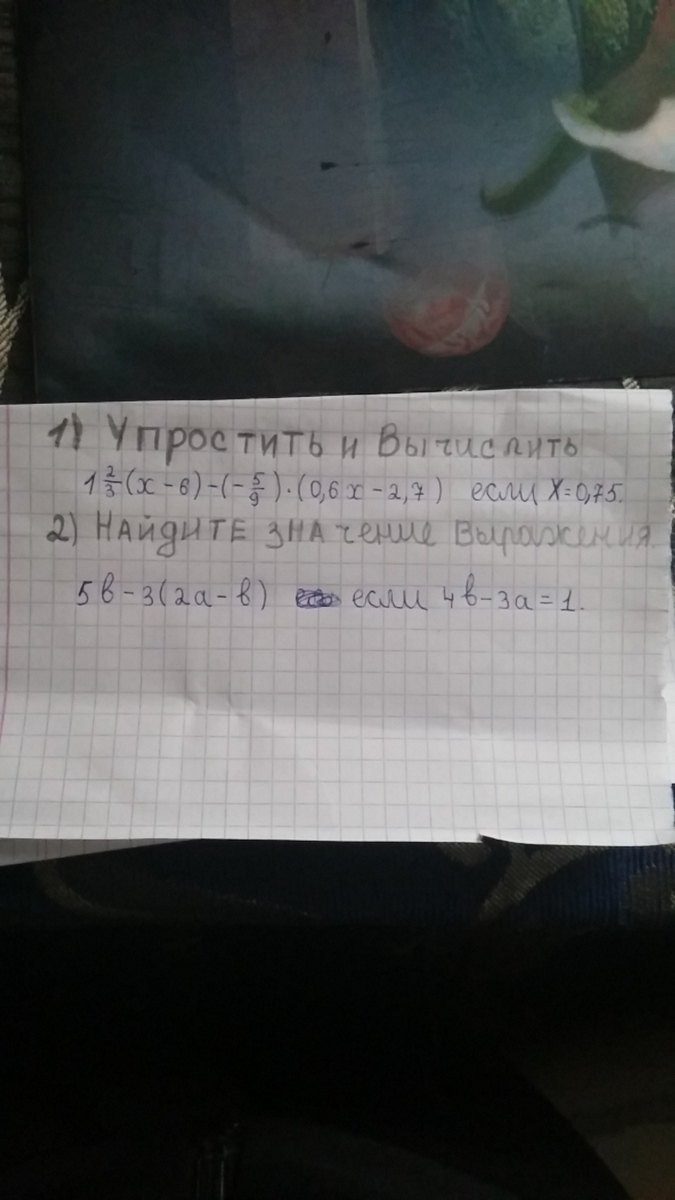 1) Упростить и Вычислить
1 2/3 (x - 6) - (- 5/9) · (0,6x - 2,7) если X = 0,75.
2) НАЙДИТЕ ЗНАчение Выражения.
5в - 3(2а - в) если 4в - 3а = 1.